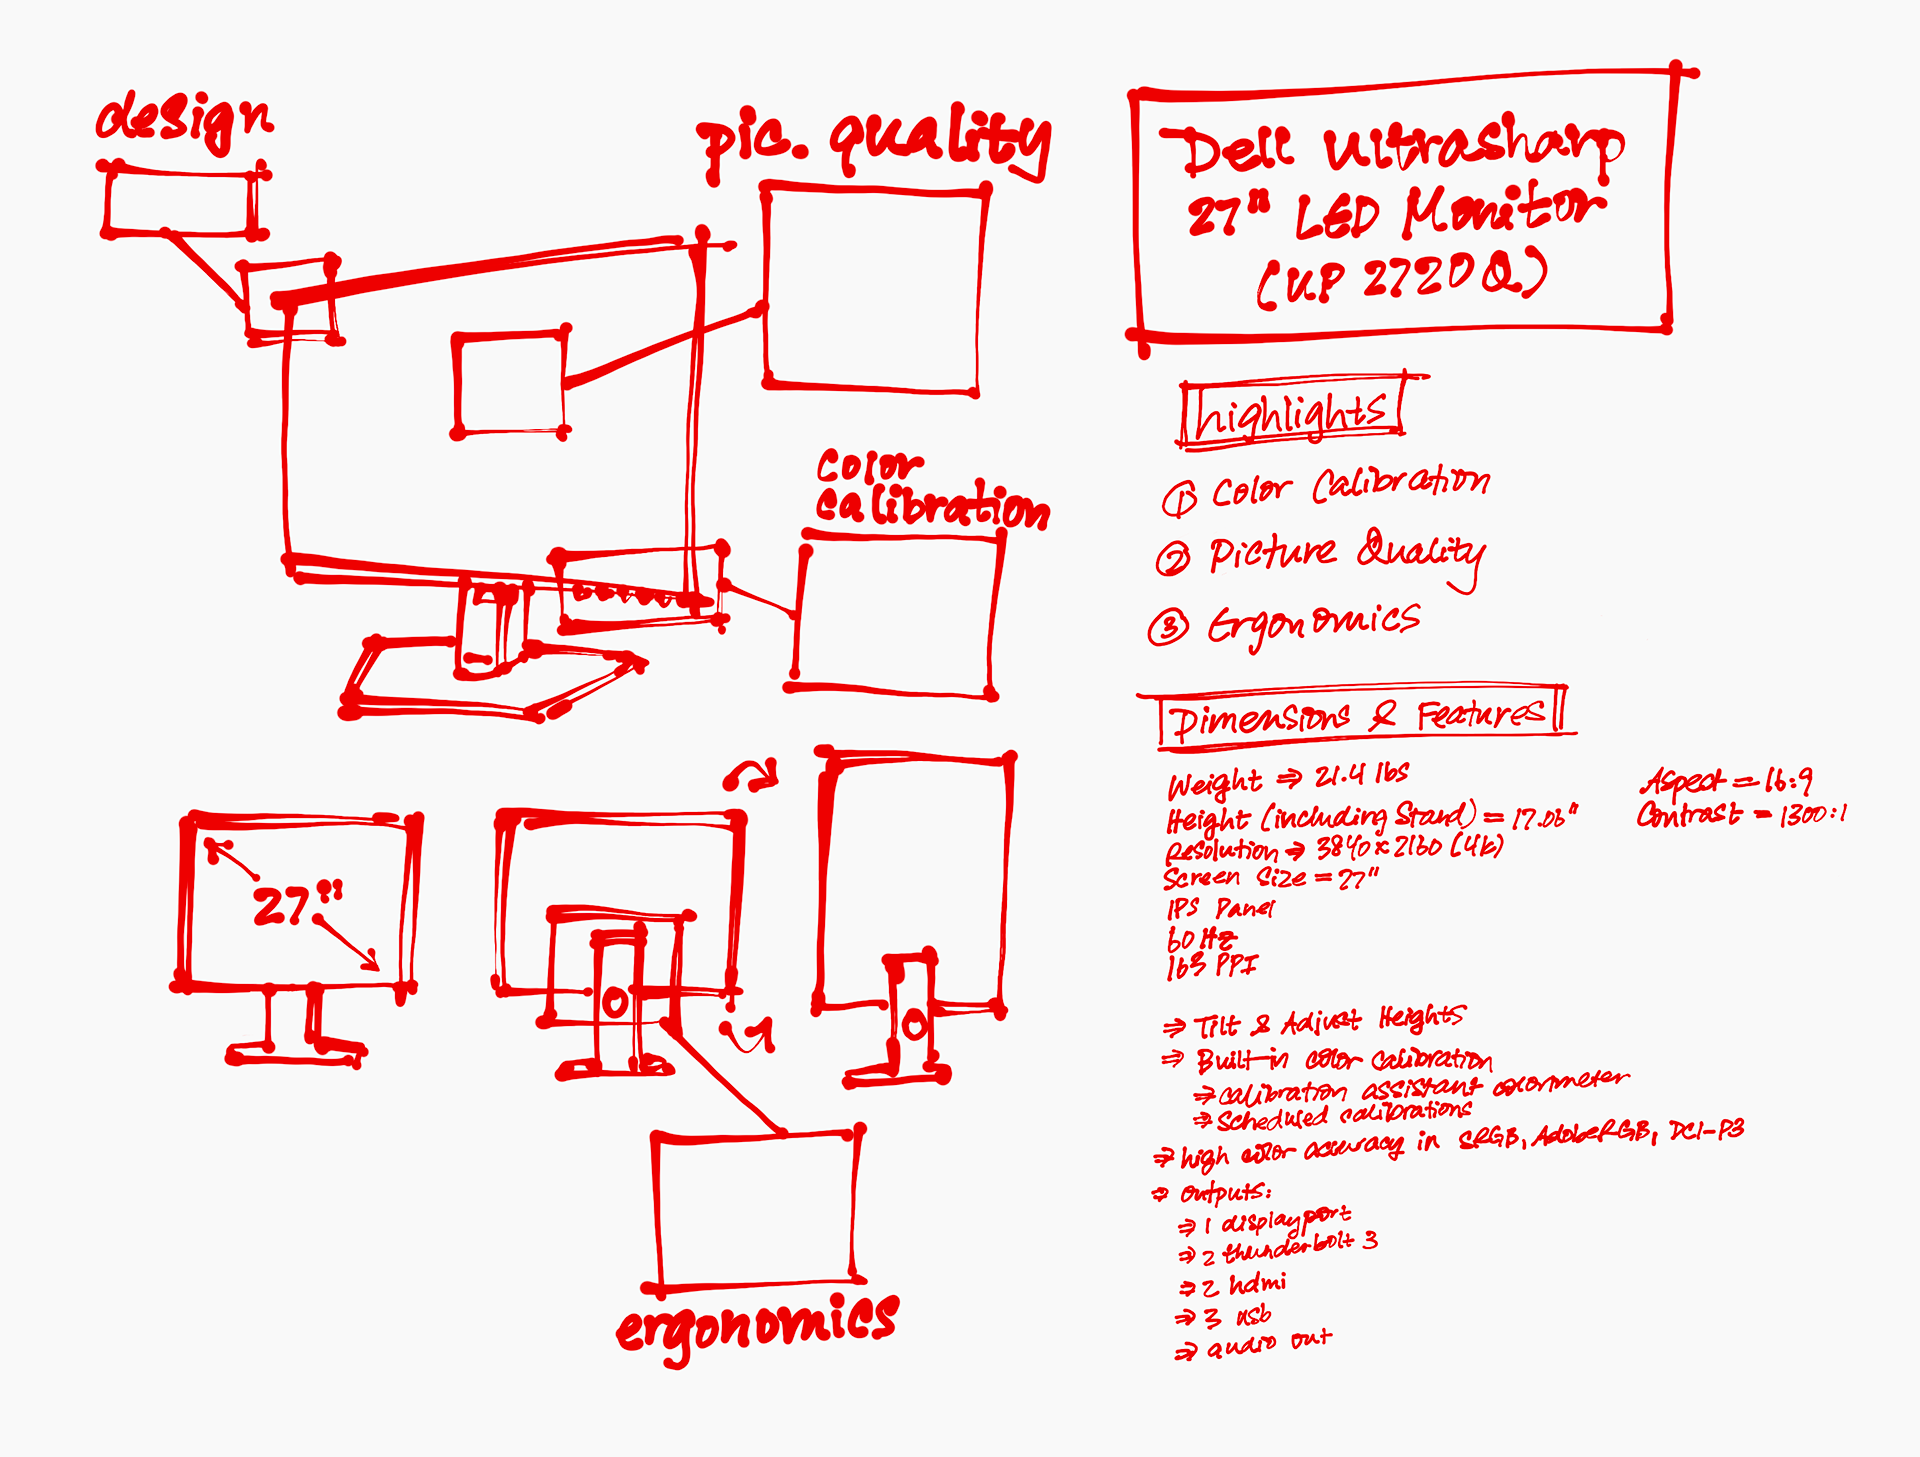 design
pic. quality
color
calibration
27"
ergonomics
Dell Ultrasharp
27" LED Monitor
(UP 2720Q)
highlights
① Color Calibration
② Picture Quality
③ Ergonomics
Dimensions & Features
Weight ⇒ 21.4 lbs
Height (including Stand) = 17.06"
Resolution ⇒ 3840 x 2160 (4k)
Screen Size = 27"
IPS Panel
60 Hz
163 PPI
Aspect = 16:9
Contrast = 1300:1
⇒ Tilt & Adjust Heights
⇒ Built-in color calibration
⇒ calibration assistant colorimeter
⇒ scheduled calibrations
⇒ high color accuracy in SRGB, AdobeRGB, DCI-P3
⇒ outputs:
⇒ 1 displayport
⇒ 2 thunderbolt 3
⇒ 2 hdmi
⇒ 3 usb
⇒ audio out